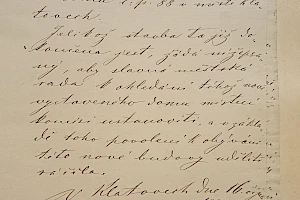 čp. 88 v městě Kla-
tovech.
Jelikož stavba ta již do-
končena jest, žádá nížepsa-
ný, aby slavná městská
rada k ohledání téhož nově
vystaveného domu místní
komisi ustanoviti, a v zákla-
dě toho povolení k obývání
této nové budovy uděliti
ráčila.
V Klatovech dne 16